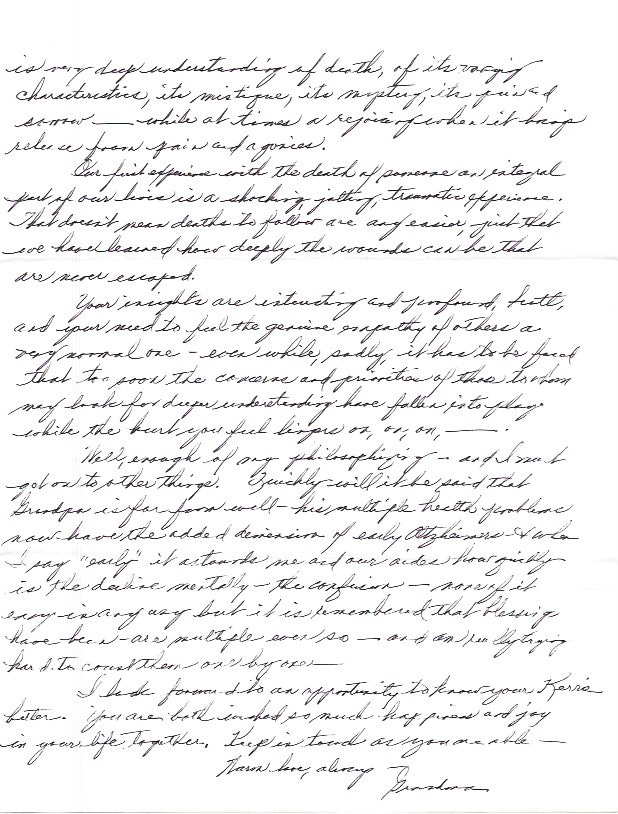 is very deep understanding of death, of its varying
characteristics, its mistique, its mystery, its pain and
sorrow — while at times a rejoicing when it brings
release from pain and agonies.
Our first experience with the death of someone an integral
part of our lives is a shocking, jolting, traumatic experience.
That doesn't mean deaths to follow are any easier, just that
we have learned how deeply the wounds can be that
are never escaped.
Your insights are interesting and profound,
and your need to feel the genuine empathy of others a
very normal one - even while, sadly, it has to be faced
that too soon the concerns and priorities of those to whom
may look for deeper understanding have fallen into place
while the hurt you feel lingers on, on, on, —.
Well, enough of my philosophizing - and I must
get on to other things. Quickly will it be said that
Grandpa is far from well - his multiple health problems
now have the added dimension of early Alzheimers - & when
I say "early" it astounds me and our aides how quickly
is the decline mentally - the confusion - none of it
easy in any way but it is remembered that blessings
have been - are multiple even so - and am really trying
hard to count them one by one —
I look forward to an opportunity to know your Kerrie
better. You are both wished so much happiness and joy
in your life together. Keep in touch as you are able —
Warm love, always -
Grandma